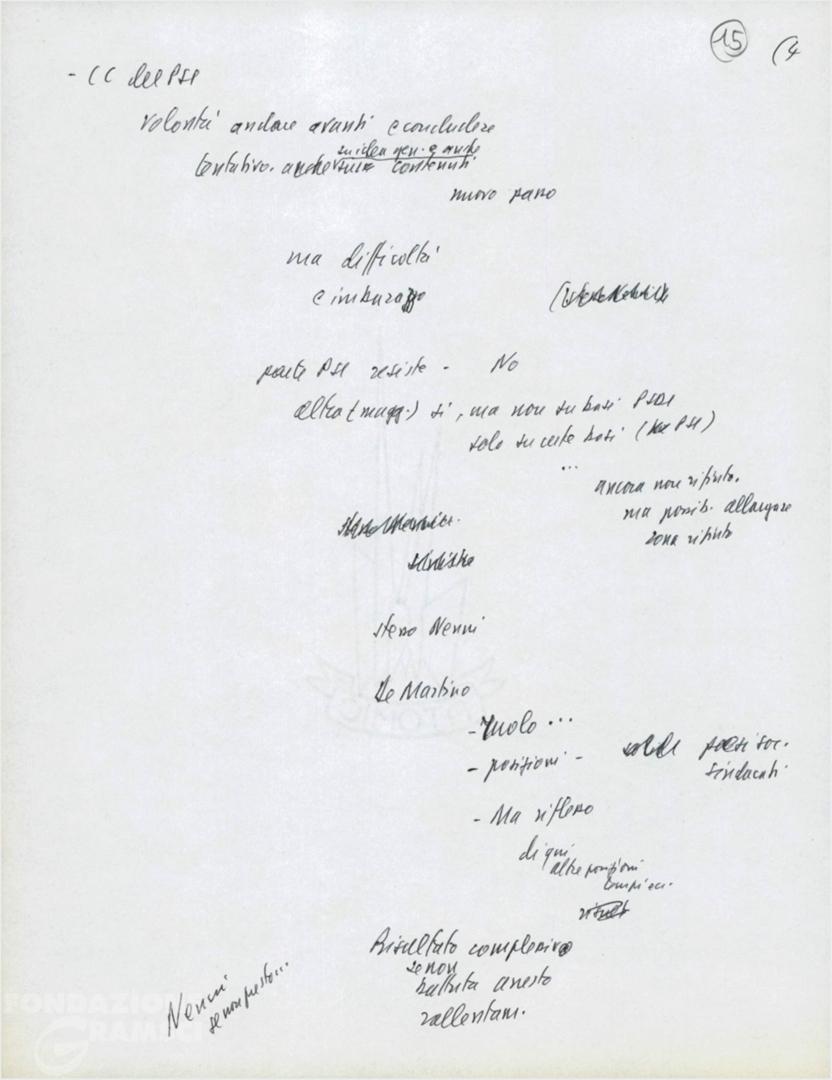 15 (4
- CC del PSI
volontà andare avanti e concludere
su idea gen. e anche
tentativo. anche contenuti
nuovo passo
ma difficoltà
e imbarazzo
parte PSI resiste - No
altra (magg.) sì, ma non su basi PSDI
solo su certe basi (PSI)
...
ancora non rifiuto.
ma possib. allargare
zona rifiuto
sinistre
stesso Nenni
De Martino
- ruolo ...
- posizioni - paesi soc.
sindacati
- Ma riflesso
di qui
altre posizioni
Risultato complessivo
se non
battuta arresto
rallentam.
Nenni
se non presto...
FONDAZIONE
GRAMSCI